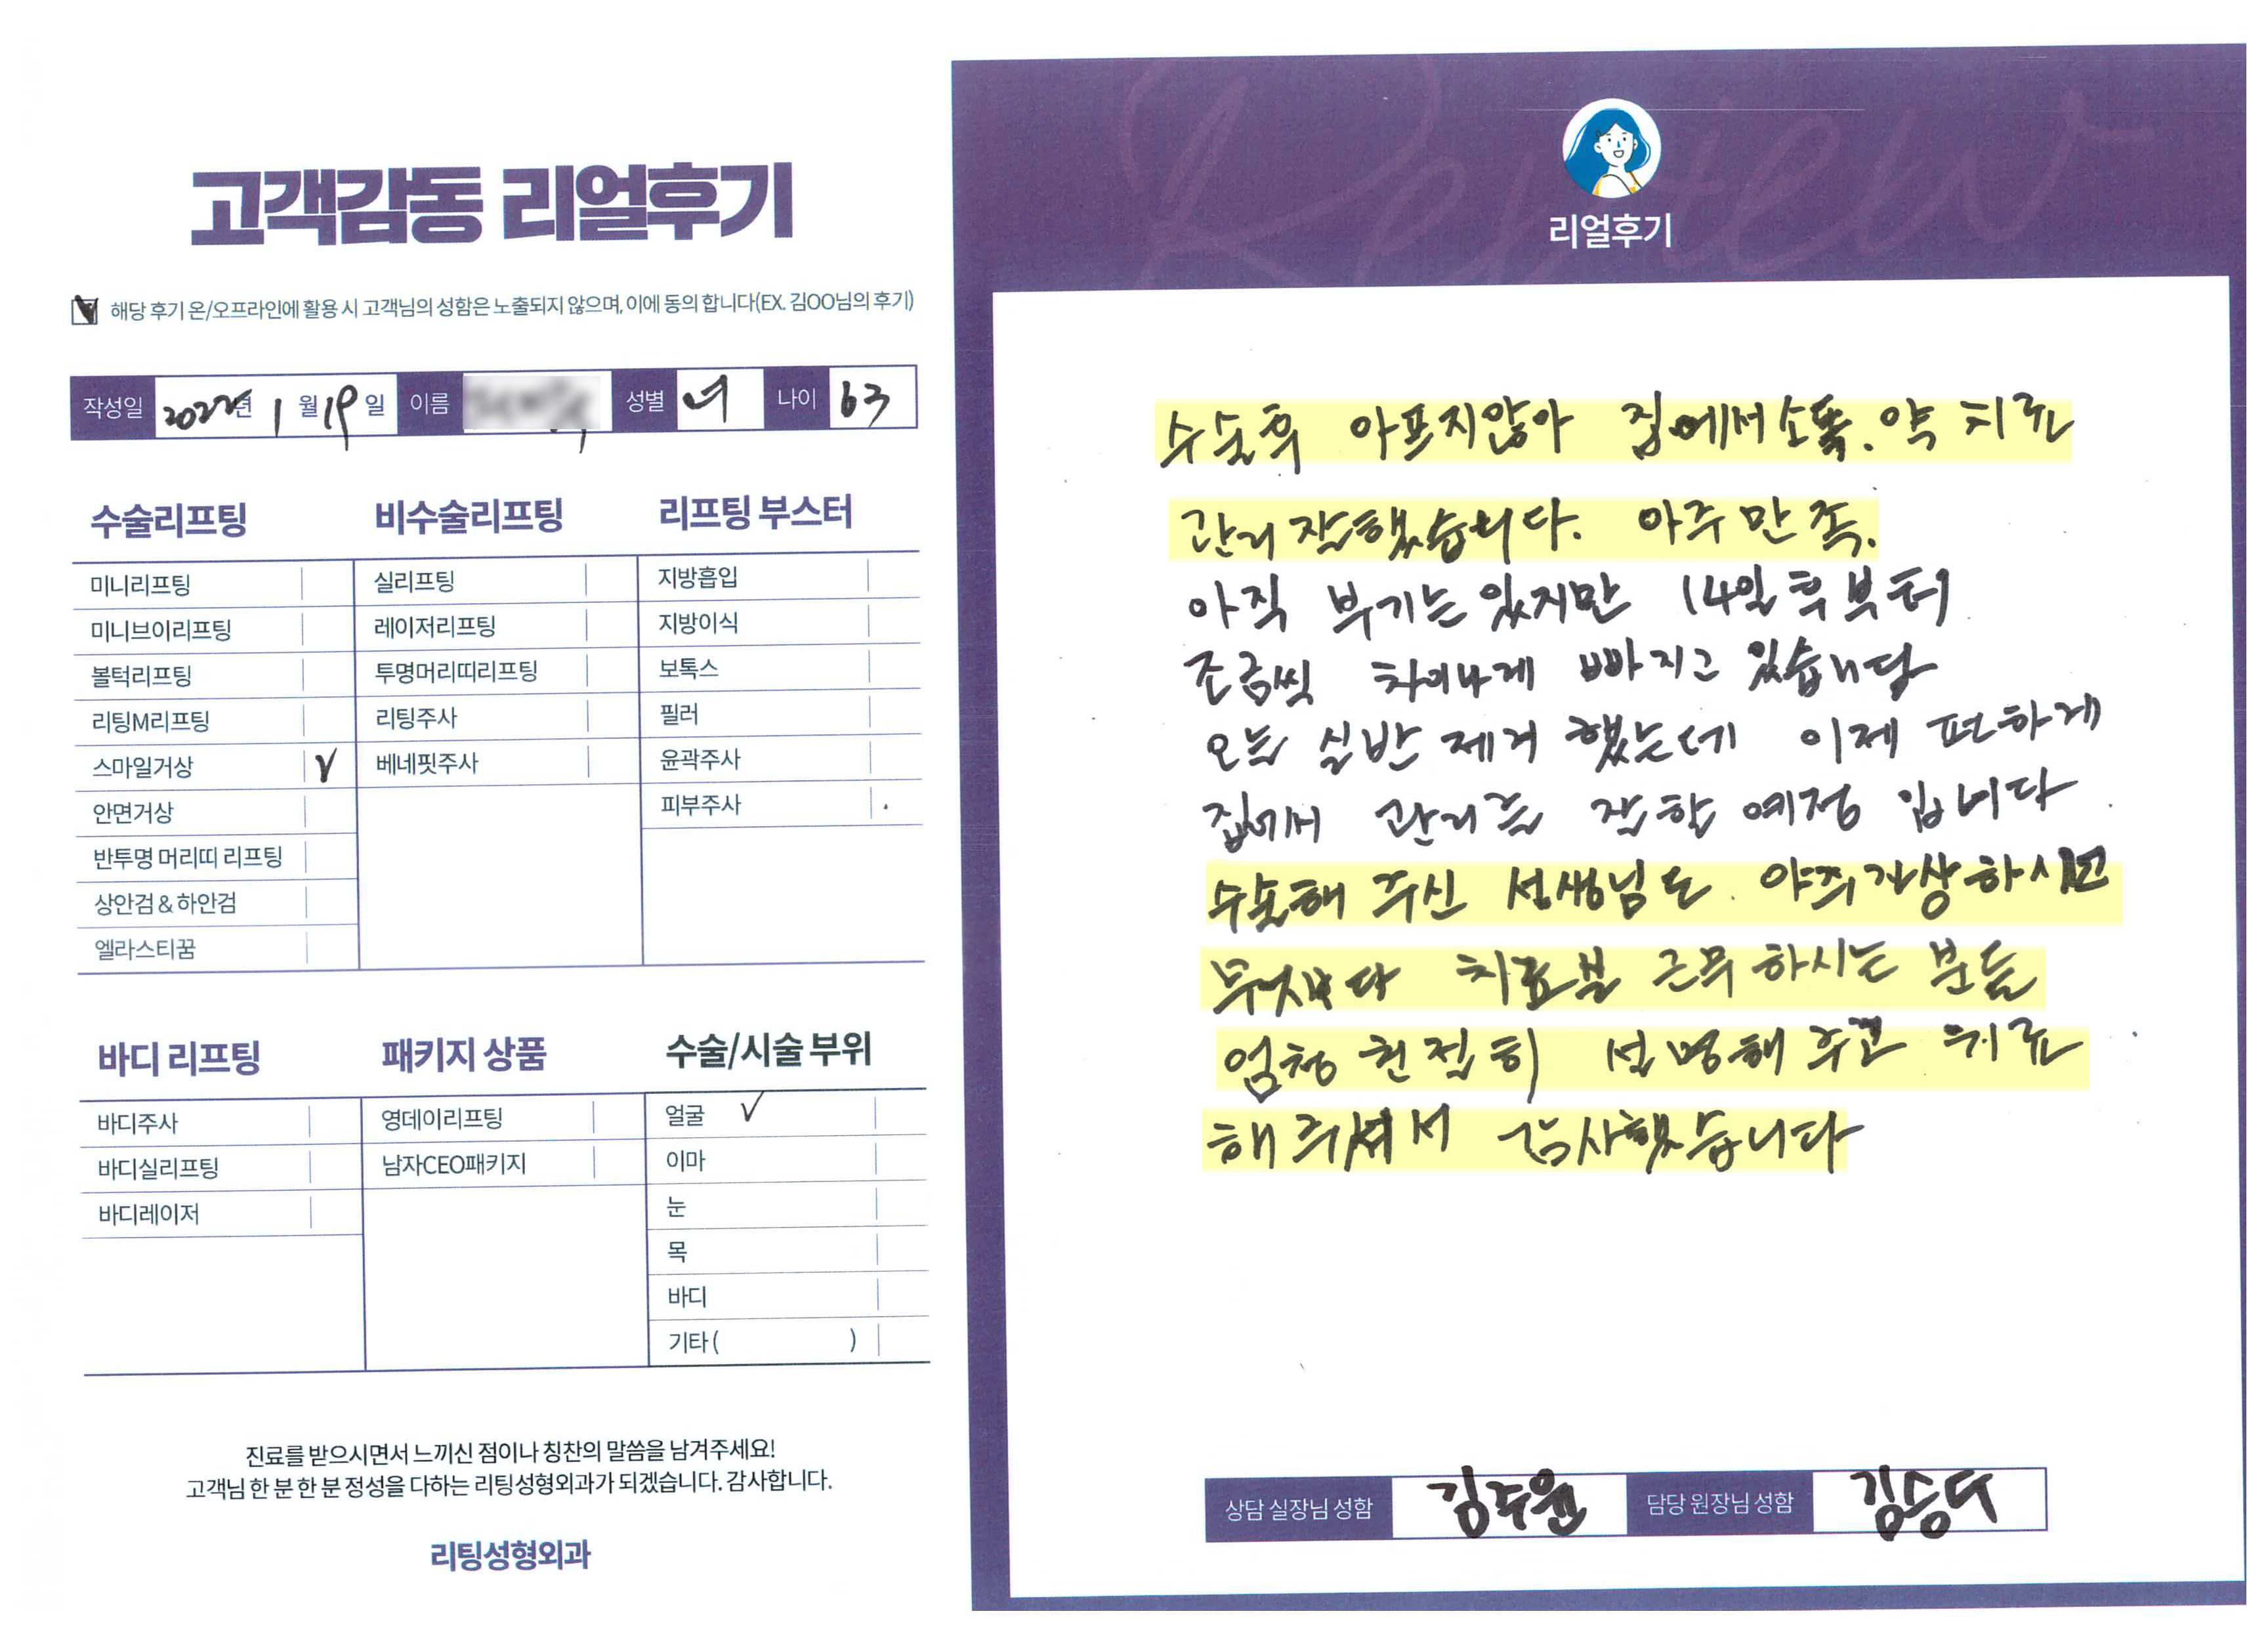 고객감동 리얼후기
해당 후기 온/오프라인에 활용 시 고객님의 성함은 노출되지 않으며, 이에 동의 합니다(EX. 김OO님의 후기)
작성일 2022년 1월 19일 이름 성별 녀 나이 63
수술리프팅
미니리프팅
미니브이리프팅
볼턱리프팅
리팅M리프팅
스마일거상 V
안면거상
반투명 머리띠 리프팅
상안검 & 하안검
엘라스티꿈
비수술리프팅
실리프팅
레이저리프팅
투명머리띠리프팅
리팅주사
베네핏주사
리프팅 부스터
지방흡입
지방이식
보톡스
필러
윤곽주사
피부주사
바디 리프팅
바디주사
바디실리프팅
바디레이저
패키지 상품
영데이리프팅
남자CEO패키지
수술/시술 부위
얼굴 √
이마
눈
목
바디
기타 ( )
진료를 받으시면서 느끼신 점이나 칭찬의 말씀을 남겨주세요!
고객님 한 분 한 분 정성을 다하는 리팅성형외과가 되겠습니다. 감사합니다.
리팅성형외과
Review
리얼후기
수술후 아프지않아 집에서소독. 약 치료
관리 잘했습니다. 아주 만족.
아직 부기는 있지만 14일후부터
조금씩 차이나게 빠지고 있습니다
오늘 실밥 제거 했는데 이제 편하게
집에서 관리를 잘할 예정 입니다
수술해 주신 선생님도. 아주자상하시고
무엇보다 치료실 근무하시는 분들
엄청 친절히 설명해주고 위로
해 주셔서 감사했습니다
상담 실장님 성함 김주원 담당 원장님 성함